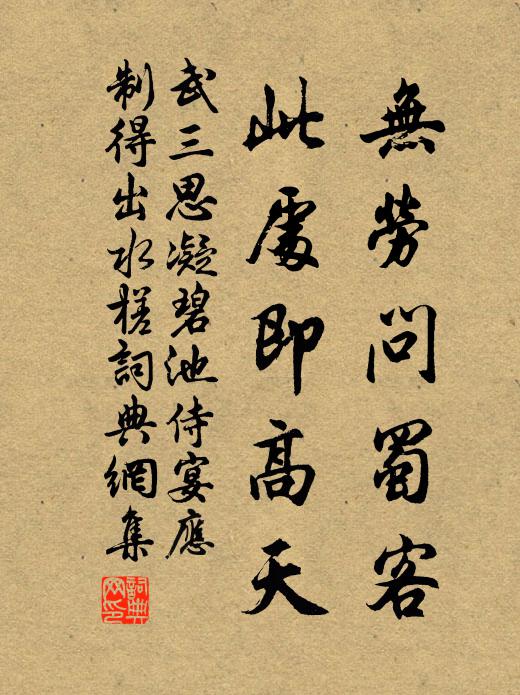 無勞問蜀客
此處即高天
武三思凝碧池侍宴應
制得出水槎詞典網集
詞典网印